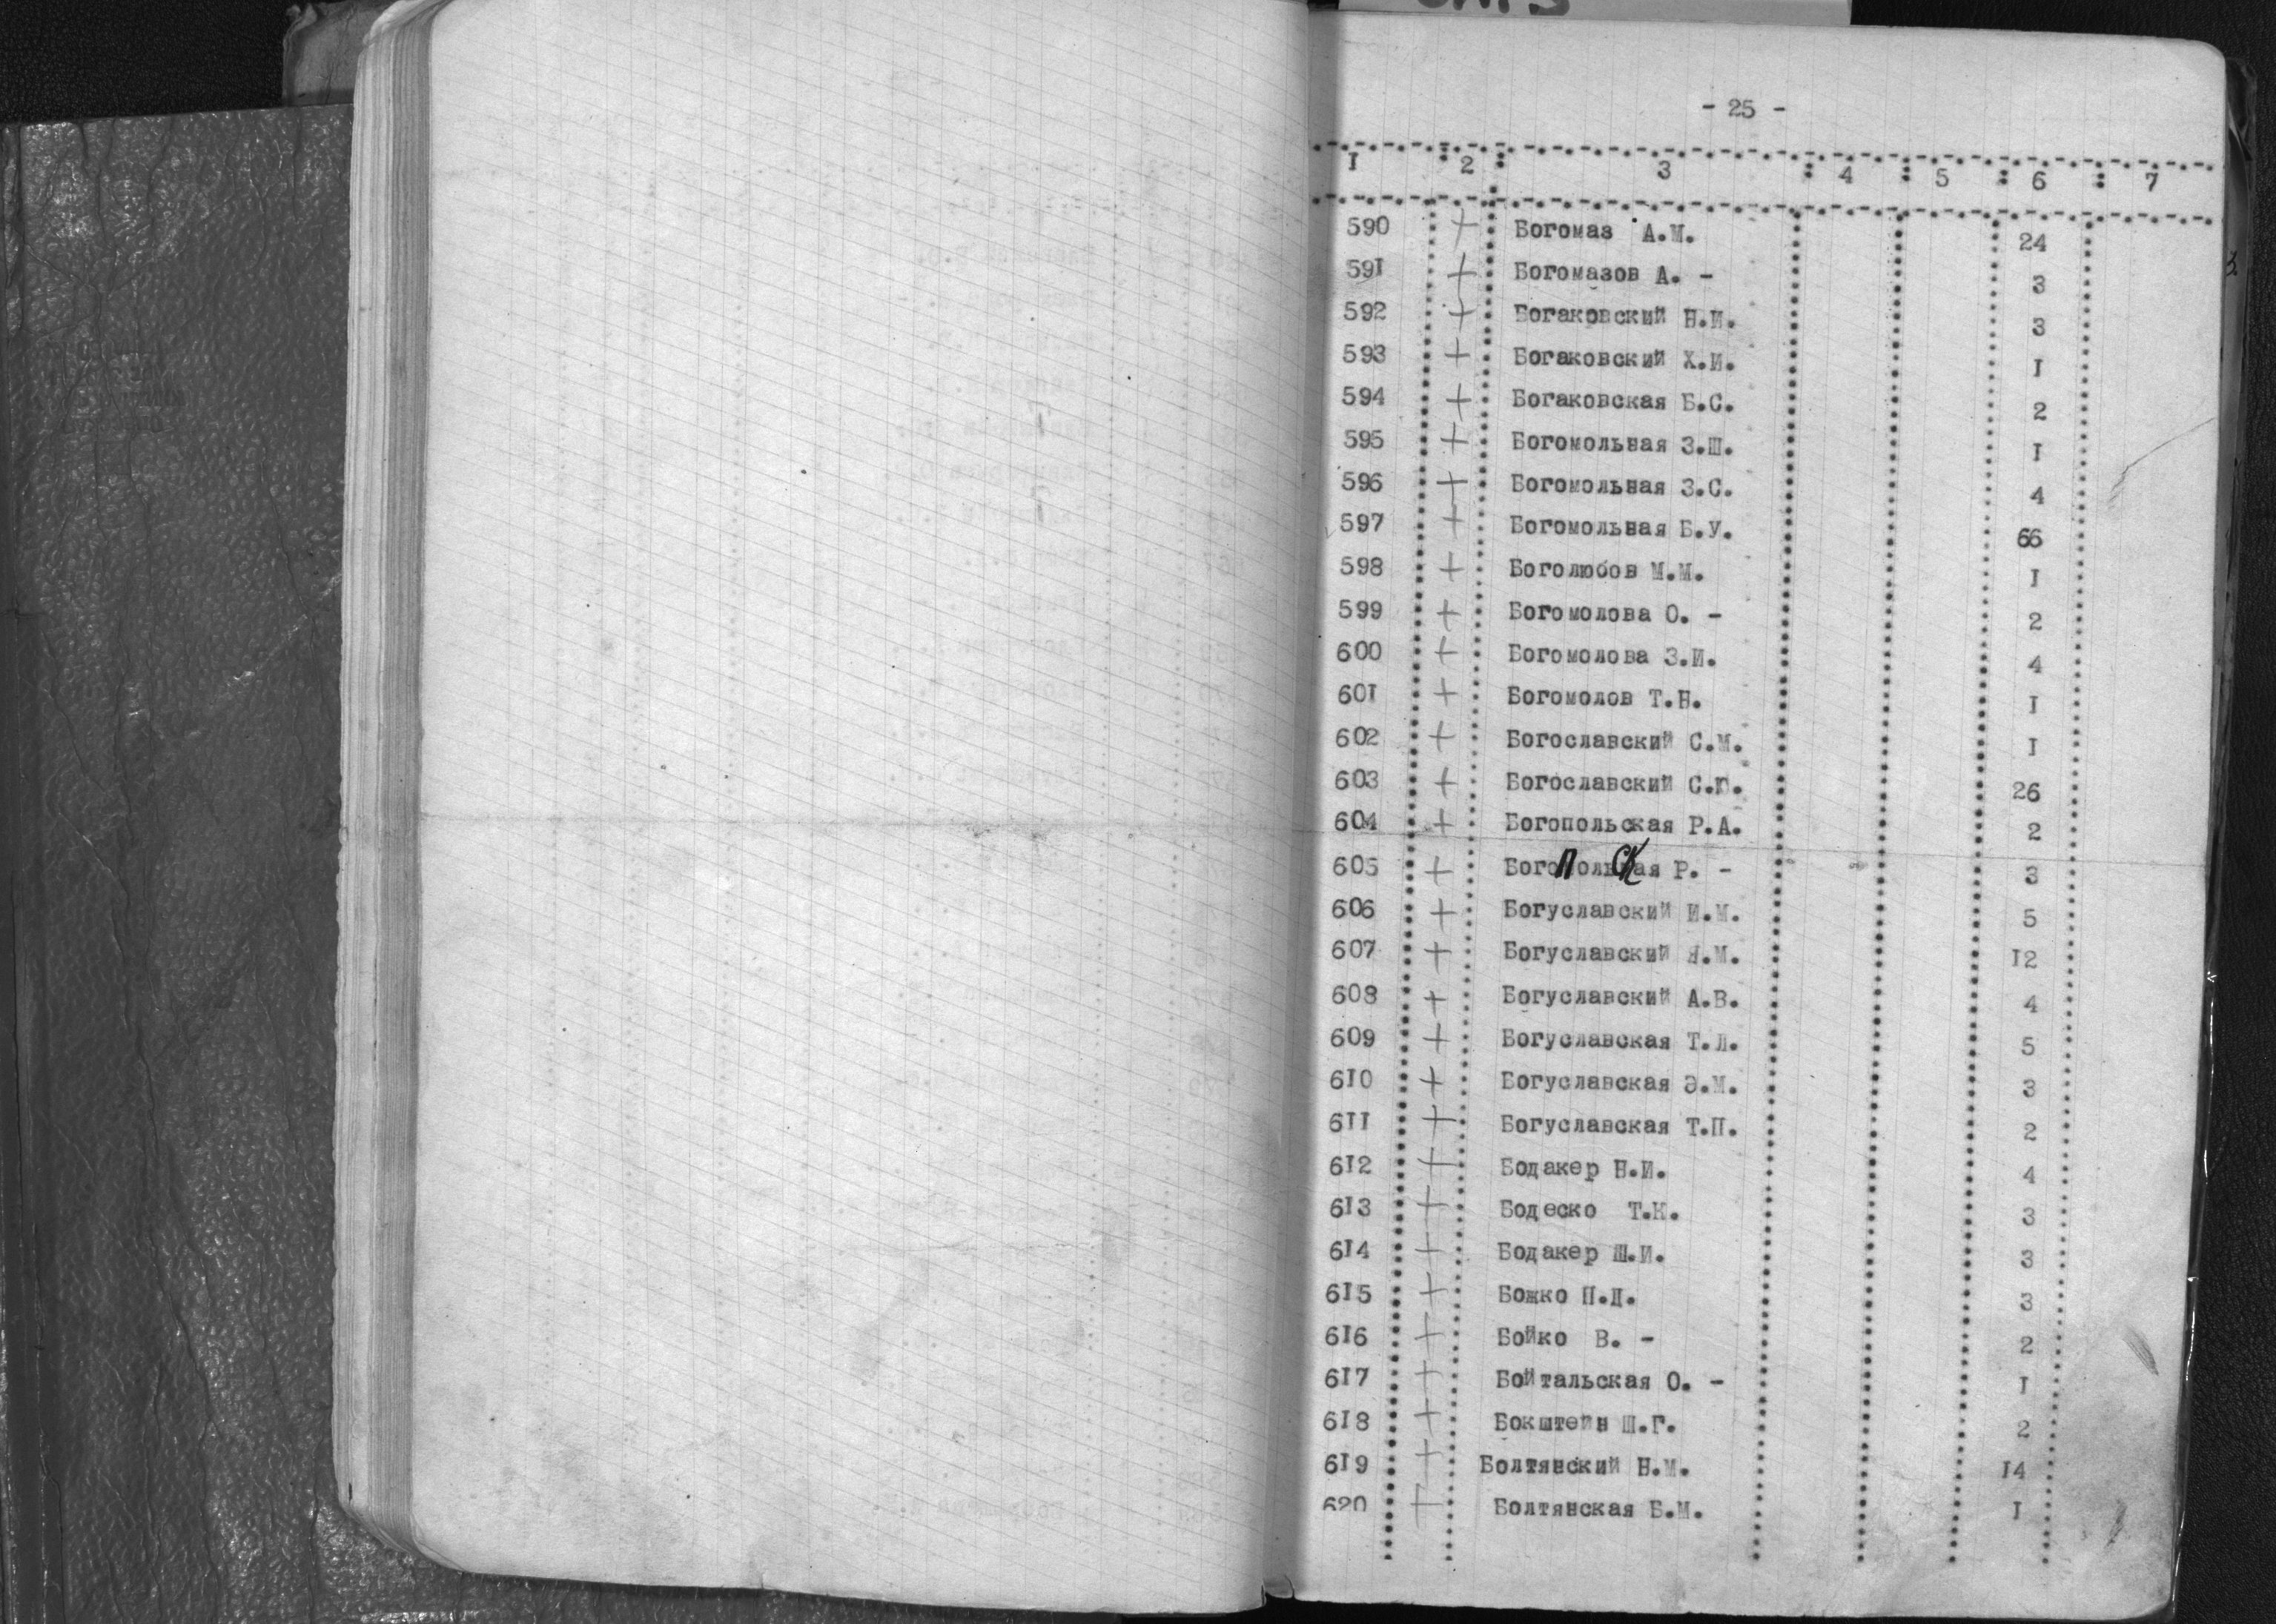 - 25 -
I 2 3 4 5 6 7
590 + Богомаз А.М. 24
591 + Богомазов А. - 3
592 + Богаковский Н.И. 3
593 + Богаковский Х.И. I
594 + Богаковская Б.С. 2
595 + Богомольная З.Ш. I
596 + Богомольная З.С. 4
597 + Богомольная Б.У. 66
598 + Боголюбов М.М. I
599 + Богомолова О. - 2
600 + Богомолова З.И. 4
60I + Богомолов Т.Н. I
602 + Богославский С.М. I
603 + Богославский С.Ю. 26
604 + Богопольская Р.А. 2
605 + Богопольская Р. - 3
606 + Богуславский И.М. 5
607 + Богуславский Я.М. I2
608 + Богуславский А.В. 4
609 + Богуславская Т.Л. 5
6I0 + Богуславская Э.М. 3
6II + Богуславская Т.П. 2
6I2 + Бодакер Н.И. 4
6I3 + Бодеско Т.К. 3
6I4 + Бодакер Ш.И. 3
6I5 + Божко П.Д. 3
6I6 + Бойко В. - 2
6I7 + Бойтальская О. - I
6I8 + Бокштейн Ш.Г. 2
6I9 + Болтянский Н.М. I4
620 + Болтянская Б.М. I